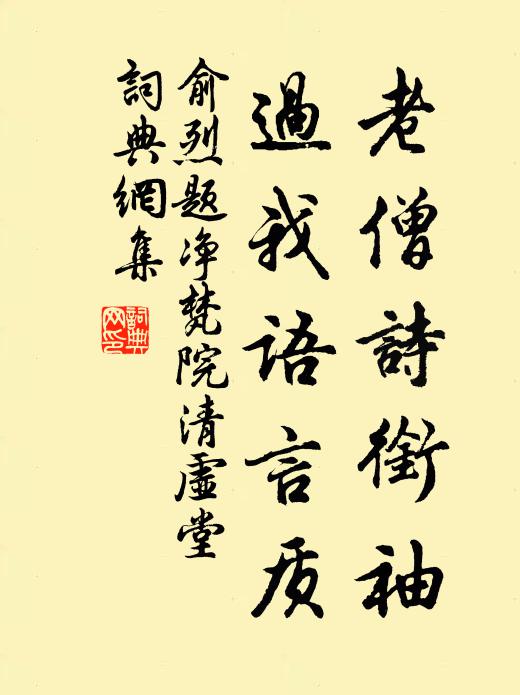 老僧詩銜袖
過我語言质
俞烈题净梵院清虛堂
詞典網集
詞典網印